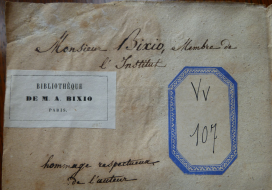 Monsieur Bixio, Membre de
l'Institut
BIBLIOTHÈQUE
DE M. A. BIXIO
PARIS.
Vv
107
hommage respectueux
de l'auteur